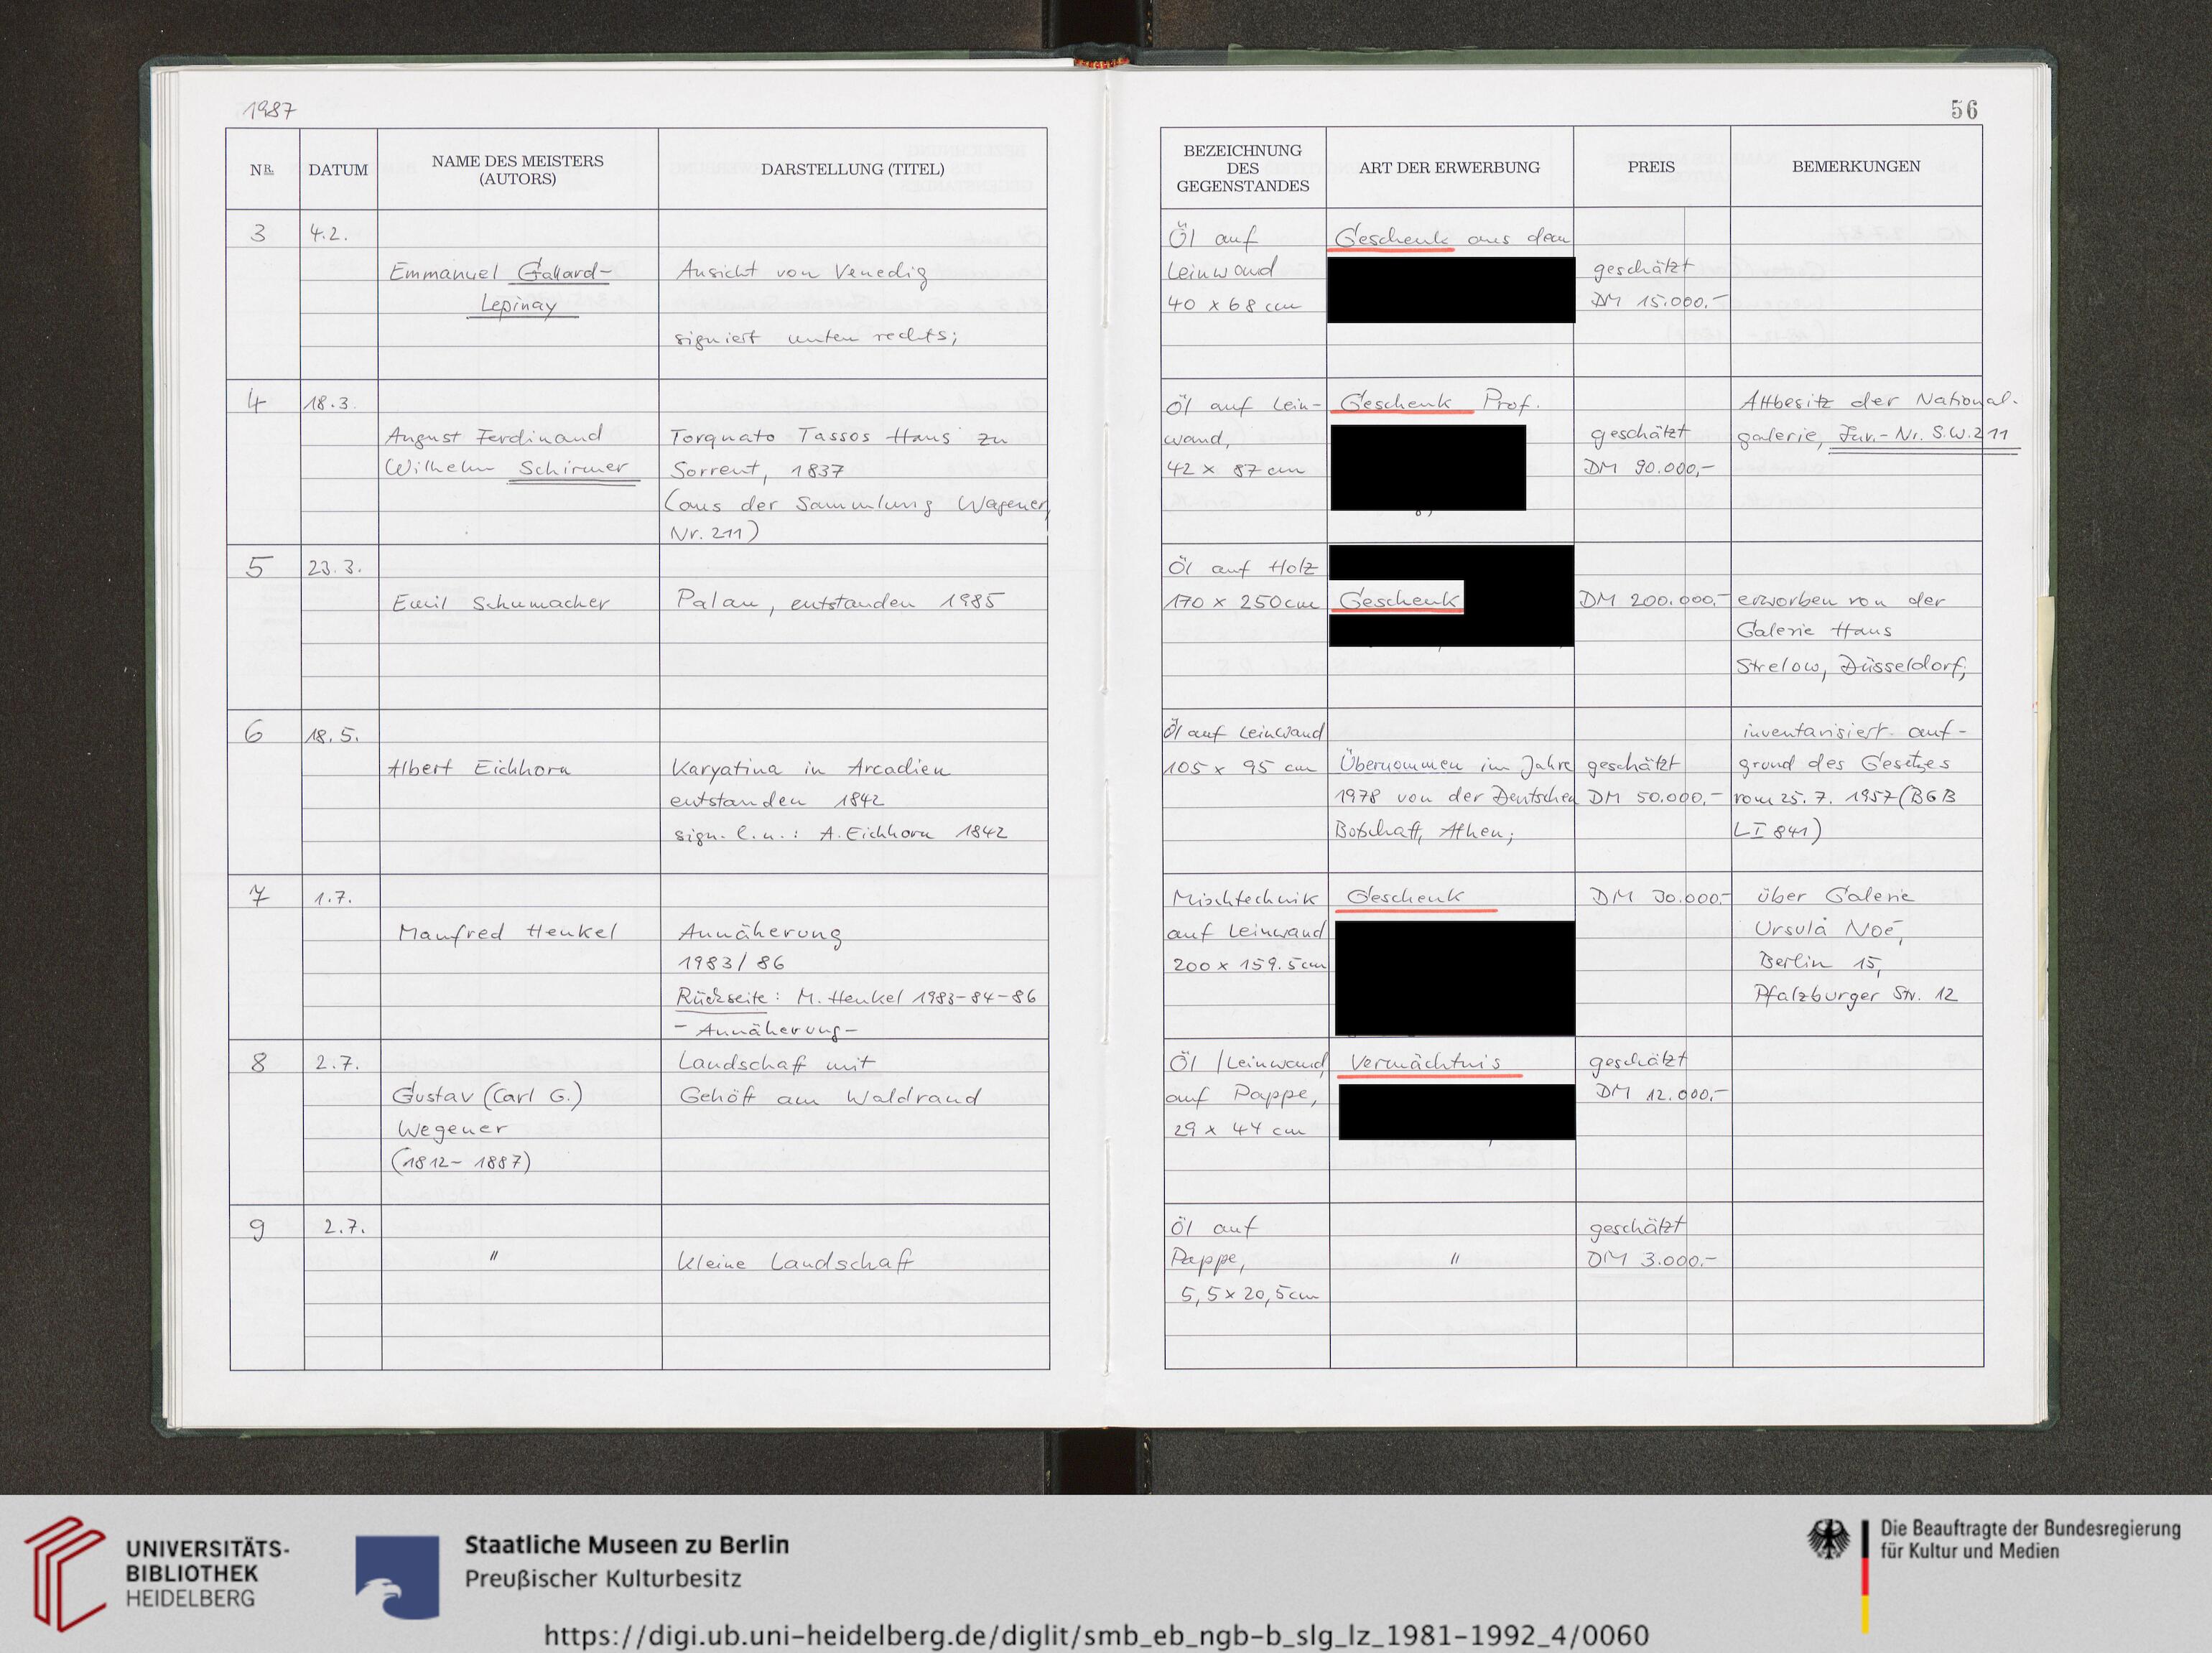 1987
56
NR.
DATUM
NAME DES MEISTERS
(AUTORS)
DARSTELLUNG (TITEL)
BEZEICHNUNG
DES
GEGENSTANDES
ART DER ERWERBUNG
PREIS
BEMERKUNGEN
3
4.2.
Emmanuel Gallard-
Lepinay
Ansicht von Venedig
signiert unten rechts;
Öl auf
Leinwand
40 x 68 cm
Geschenk aus dem
geschätzt
DM 15.000.-
4
18.3.
August Ferdinand
Wilhelm Schirmer
Torquato Tassos Haus zu
Sorrent, 1837
(aus der Sammlung Wagener,
Nr. 211)
Öl auf Lein-
wand,
42 x 87 cm
Geschenk Prof.
geschätzt
DM 90.000,-
Altbesitz der National-
galerie, Inv.-Nr. S.W.211
5
23.3.
Emil Schumacher
Palau, entstanden 1985
Öl auf Holz
170 x 250 cm
Geschenk
DM 200.000,-
erworben von der
Galerie Haus
Strelow, Düsseldorf;
6
18.5.
Albert Eichhorn
Karyatina in Arcadien
entstanden 1842
sign. l.u.: A. Eichhorn 1842
Öl auf Leinwand
105 x 95 cm
Übernommen im Jahre
1978 von der Deutschen
Botschaft, Athen;
geschätzt
DM 50.000,-
inventarisiert auf-
grund des Gesetzes
vom 25.7. 1957 (BGB
LI 841)
7
1.7.
Manfred Henkel
Annäherung
1983/86
Rückseite: M. Henkel 1983-84-86
- Annäherung-
Mischtechnik
auf Leinwand
200 x 159.5cm
Geschenk
DM 30.000.-
über Galerie
Ursula Noé,
Berlin 15,
Pfalzburger Str. 12
8
2.7.
Gustav (Carl G.)
Wegener
(1812- 1887)
Landschaft mit
Gehöft am Waldrand
Öl / Leinwand
auf Pappe,
29 x 44 cm
Vermächtnis
geschätzt
DM 12.000,-
9
2.7.
"
Kleine Landschaft
Öl auf
Pappe,
5,5 x 20,5cm
"
geschätzt
DM 3.000.-
UNIVERSITÄTS-
BIBLIOTHEK
HEIDELBERG
Staatliche Museen zu Berlin
Preußischer Kulturbesitz
Die Beauftragte der Bundesregierung
für Kultur und Medien
https://digi.ub.uni-heidelberg.de/diglit/smb_eb_ngb-b_slg_lz_1981-1992_4/0060